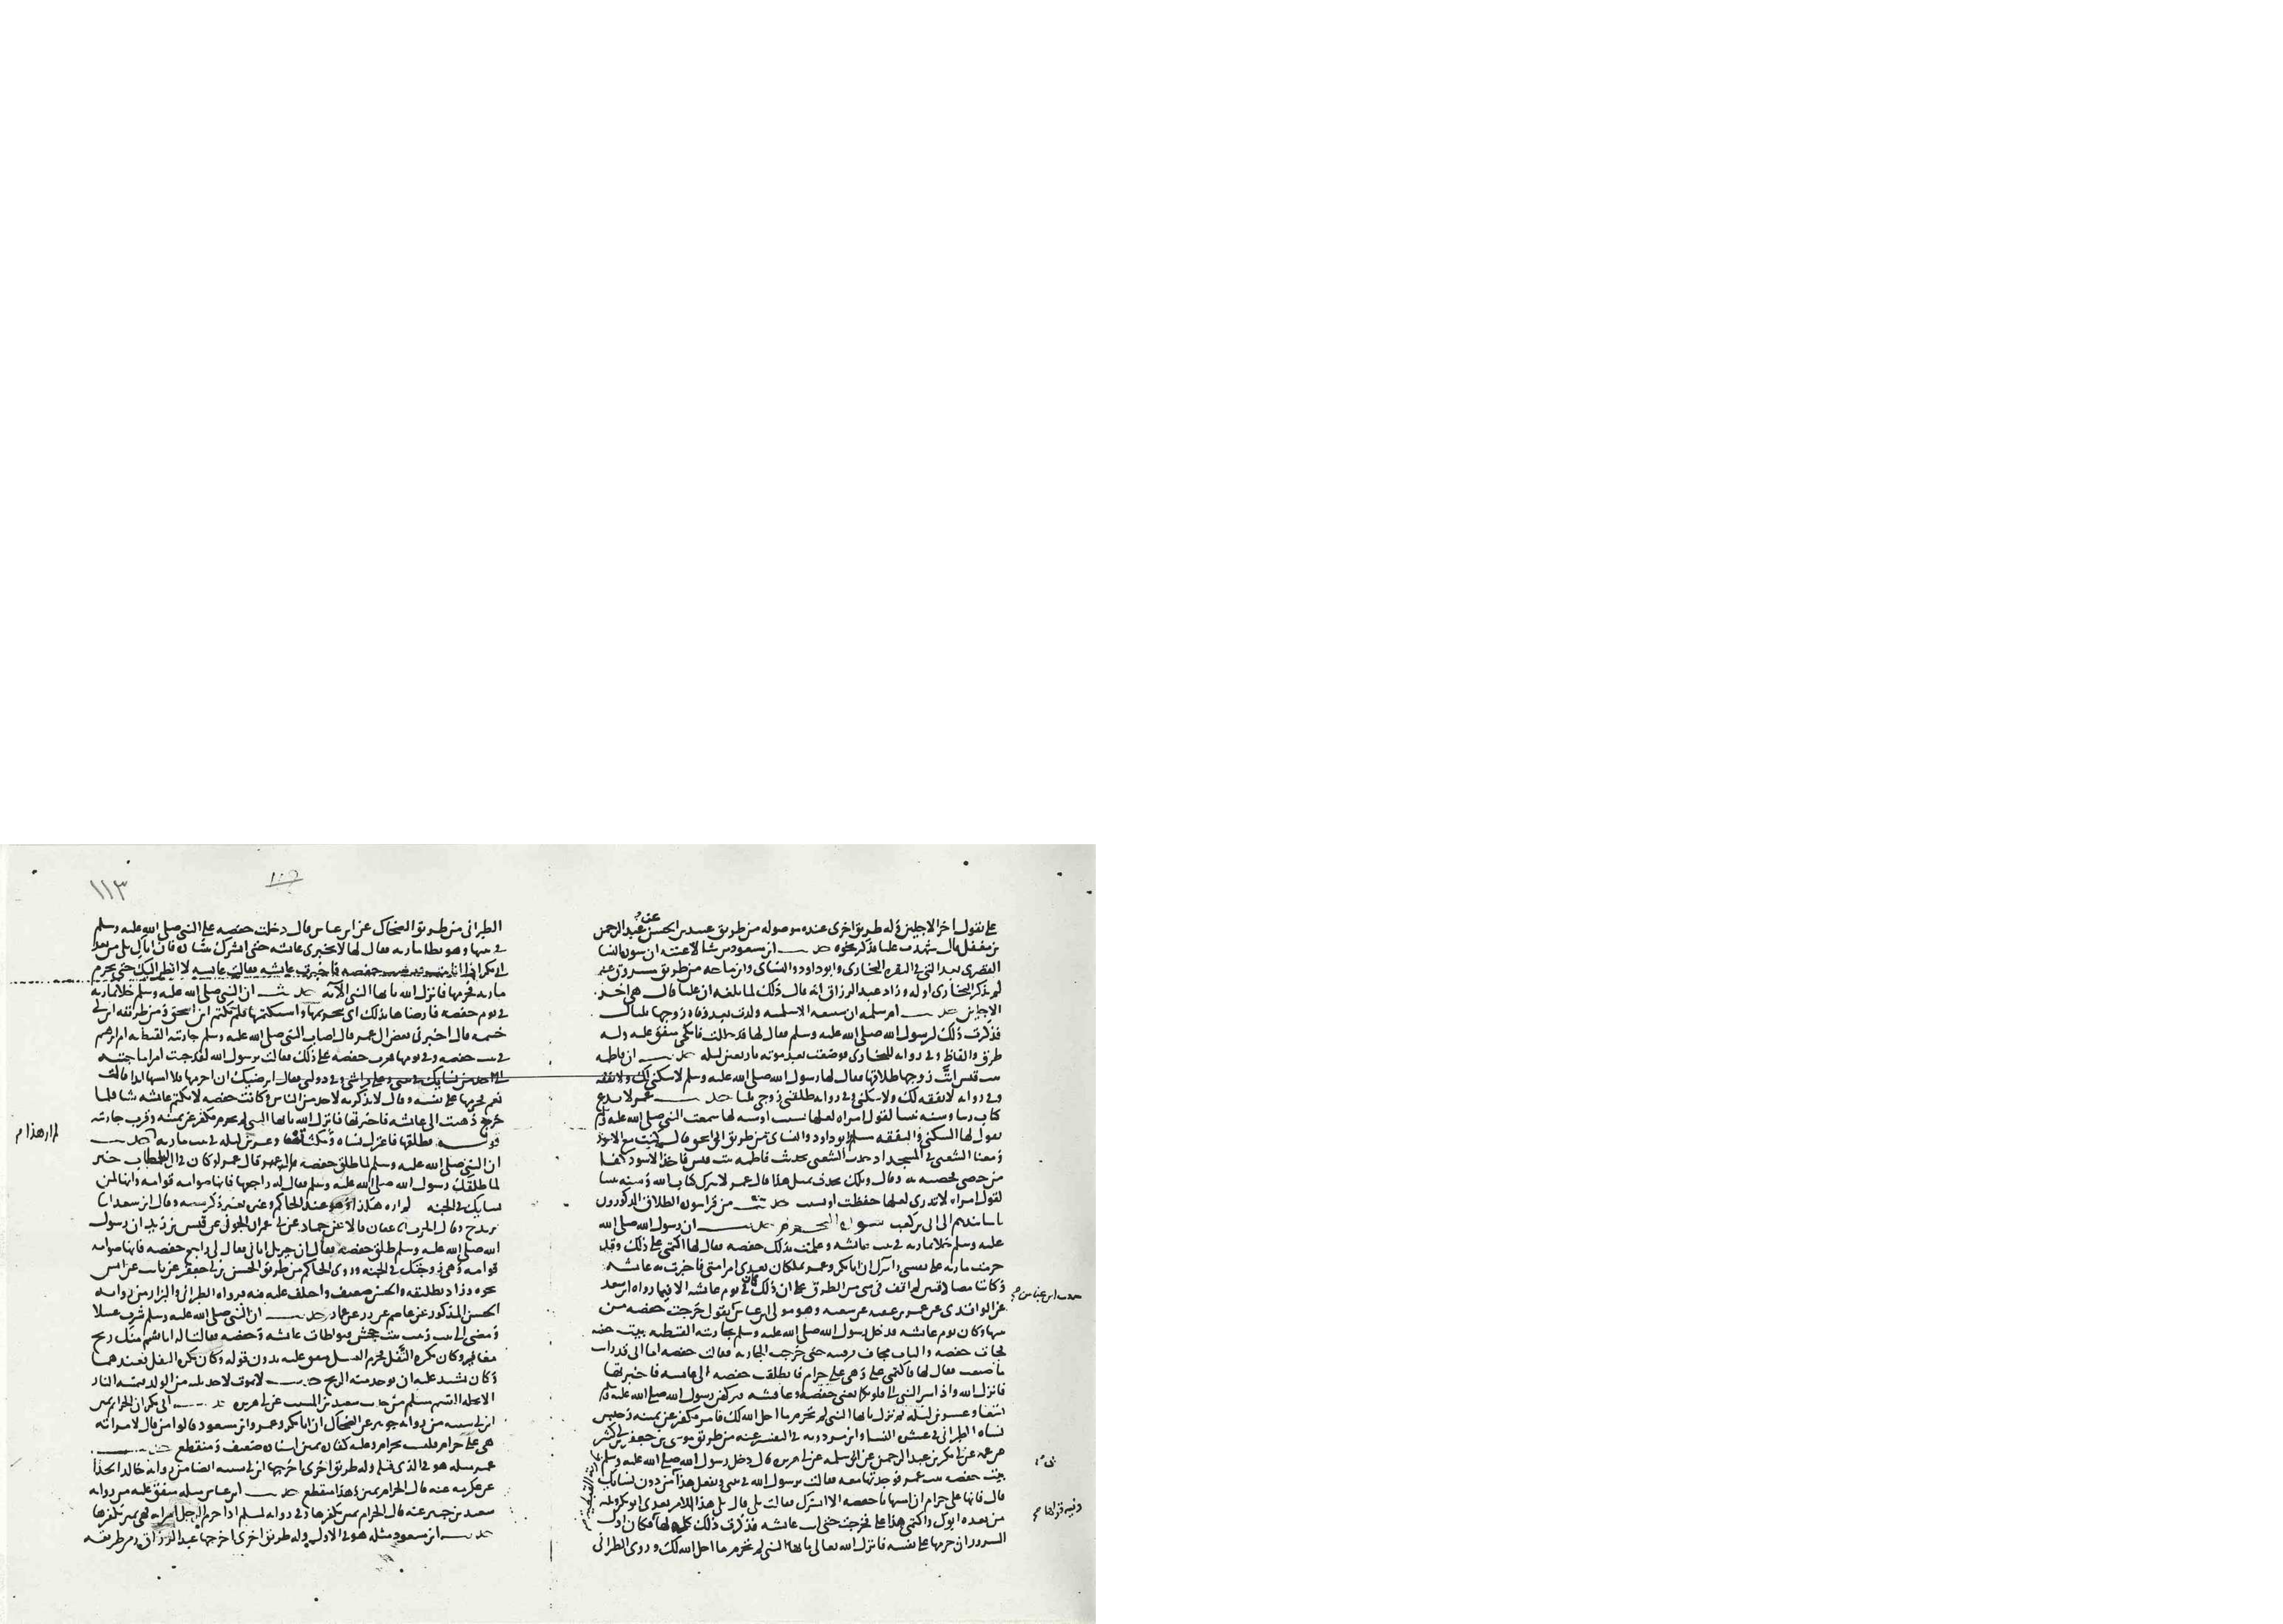 على يقول اخر الاجلين وله طريق اخرى عنده موصوله من طريق عبيد بن الحسن عن عبد الرحمن
بن معقل قال شهدت عليا فذكر نحوه حديث ابن مسعود من شا لاعنته ان سوره النسا
القصرى بعد التي في البقره البخارى وابو داود والنساى وابن ماجه من طريق مسروق عنه
لم يذكر البخارى اوله وزاد عبد الرزاق انه قال ذلك لما بلغه ان عليا قال هي اخر
الاجلين حديث ام سلمه ان سبيعه الاسلميه ولدت بعد وفاه زوجها بليال
فذكرت ذلك لرسول الله صلى الله عليه وسلم فقال لها قد حللت فانكحى متفق عليه وله
طرق والفاظ وفي روايه للبخارى فوضعت بعد موته باربعين ليله حديث ان فاطمه
بنت قيس ابت زوجها طلاقها فقال لها رسول الله صلى الله عليه وسلم لا سكنى لك ولا نفقه
وفي روايه لا نفقه لك ولا سكنى وفي روايه طلقنى زوجى ثلثا حديث عمر لا ندع
كتاب ربنا وسنه نبينا لقول امراه لعلها نسيت او شبه لها سمعت النبي صلى الله عليه وسلم
يقول لها السكنى والنفقه مسلم وابو داود والنساى من طريق ابى اسحق قال كنت مع الاسود
ومعنا الشعبى في المسجد اذ حدث الشعبى بحديث فاطمه بنت قيس فاخذ الاسود كفا
من حصى فحصبه به وقال ويلك تحدث بمثل هذا قال عمر لا نترك كتاب الله وسنه نبينا
لقول امراه لا تدرى لعلها حفظت او نسيت حديث من قرا سوره الطلاق المذكورون
باسانيدهم الى ابى بن كعب سوره التحريم حديث ان رسول الله صلى الله
عليه وسلم خلا بماريه في بيت عائشه وعلمت بذلك حفصه فقال لها اكتمى على ذلك وقد
حرمت ماريه على نفسى وابشرك ان ابا بكر وعمر يملكان بعدى امر امتى فاخبرت به عائشه
وكانتا متصادقتين لم اقف في شى من الطرق على ان ذلك كان في يوم عائشه الا فيما رواه ابن سعد
عن الواقدى عن عمر بن عقبه عن شعبه وهو مولى ابن عباس يقول خرجت حفصه من
بيتها وكان يوم عائشه فدخل رسول الله صلى الله عليه وسلم بجاريته القبطيه بيت حفصه
فجات حفصه والباب مجاف فرقبته حتى خرجت الجاريه فقالت حفصه اما انى قد رايت
ما صنعت فقال لها فاكتمى على وهي على حرام فانطلقت حفصه الى عائشه فاخبرتها
فانزل الله واذ اسر النبي الى قلوبكما يعنى حفصه وعائشه فتركهن رسول الله صلى الله عليه وسلم
تسعا وعشرين ليله ثم نزل يا ايها النبي لم تحرم ما احل الله لك فامر فكفر عن يمينه وحبس
نساه الطبرانى في عشره النسا وابن مردويه في التفسير عنه من طريق موسى بن جعفر بن ابي كثير
عن عمه عن ابي بكر بن عبد الرحمن عن ابي سلمه عن ابي هريره قال دخل رسول الله صلى الله عليه وسلم
بماريه القبطيه
بيت حفصه بنت عمر فوجدتها معه فقالت يرسول الله في بيتى وتفعل هذا من دون نسايك
قال فانها على حرام ان امسها يا حفصه الا ابشرك فقالت بلى قال يلى هذا الامر بعدى ابو بكر ويليه
من بعده ابوك واكتمى هذا على فخرجت حتى اتت عائشه فذكرت ذلك كله لها فكان اول
السرور ان حرمها على نفسه فانزل الله تعالى يا ايها النبي لم تحرم ما احل الله لك وروى الطبرانى
حديث ابن عباس
١١٣
الطبرانى من طريق الضحاك عن ابن عباس قال دخلت حفصه على النبي صلى الله عليه وسلم
في بيتها وهو يطا ماريه فقال لها لا تخبرى عائشه حتى ابشرك بشاره فان اباك يلى من بعد
ابى بكر اذا انا مت فذهبت حفصه فاخبرت عائشه فقالت عائشه لا انظر اليك حتى تحرم
ماريه فحرمها فانزل الله يا ايها النبي الآيه حديث ان النبي صلى الله عليه وسلم خلا بماريه
في يوم حفصه فارضاها بذلك اى بتحريمها واستكتمها فلم تكتم ابن اسحق ومن طريقه ابن ابي
خيثمه قال اخبرنى بعض ال عمر قال اصاب النبي صلى الله عليه وسلم جاريته القبطيه ام ابرهيم
في بيت حفصه وفي يومها فعثرت حفصه على ذلك فقالت يرسول الله لقد جئت امرا ما جئته
الى احد من نسايك في بيتى وعلى فراشى وفي دولتى فقال ايرضيك ان احرمها فلا امسها ابدا قالت
نعم فحرمها على نفسه وقال لا تذكريه لاحد من الناس وكانت حفصه لا تكتم عائشه شيا فلما
خرج ذهبت الى عائشه فاخبرتها فانزل الله يا ايها النبي لم تحرم فكفر عن يمينه وقرب جاريته
قوله فطلقها فاعتزل نساه ومكث تسعا وعشرين ليله في بيت ماريه حديث
ان النبي صلى الله عليه وسلم لما طلق حفصه قال عمر لو كان في ال الخطاب خير
لما طلقك رسول الله صلى الله عليه وسلم فقال له راجعها فانها صوامه قوامه وانها لمن
نسايك في الجنه لم اره هكذا وهو عند الحاكم وغيره بغير ذكر سببه وقال ابن سعد انا
يزيد وقال الحرث ثنا عفان قالا عن حماد عن ابي عمران الجونى عن قيس بن زيد ان رسول
الله صلى الله عليه وسلم طلق حفصه فقال ان جبريل اتانى فقال لى راجع حفصه فانها صوامه
قوامه وهي زوجتك في الجنه وروى الحاكم من طريق الحسن بن ابي جعفر عن ثابت عن انس
نحوه وزاد تطليقه والحسن ضعيف واختلف عليه فيه فرواه الطبرانى والبزار من روايه
الحسن المذكور عن عاصم عن زر عن عمار حديث ان النبي صلى الله عليه وسلم شرب عسلا
ومضى الى بيت زينب بنت جحش فتواطات عائشه وحفصه فقالتا له انا نشم منك ريح
مغافير وكان يكره التفل فحرم العسل متفق عليه بدون قوله وكان يكره التفل فعندهما
وكان يشتد عليه ان توجد منه الريح حديث لا يموت لاحد ثلثه من الولد فتمسه النار
الا تحله القسم مسلم من حديث سعيد بن المسيب عن ابي هريره حديث ابى بكر ان الحرام يمين
ابن ابي شيبه من روايه جويبر عن الضحاك ان ابا بكر وعمر وابن مسعود قالوا من قال لامراته
هي على حرام فليست بحرام وعليه كفاره يمين اسناده ضعيف ومنقطع حديث
عمر مثله هو في الذى قبله وله طريق اخرى اخرجها ابن ابي شيبه ايضا من روايه خالد الحذا
عن عكرمه عنه قال الحرام يمين وهذا منقطع حديث ابن عباس مثله متفق عليه من روايه
سعيد بن جبير عنه قال الحرام يمين تكفرها وفي روايه لمسلم اذا حرم الرجل امراته فهي يمين يكفرها
حديث ابن مسعود مثله هو في الاول وله طريق اخرى اخرجها عبد الرزاق ومن طريقه
لم ار هذا